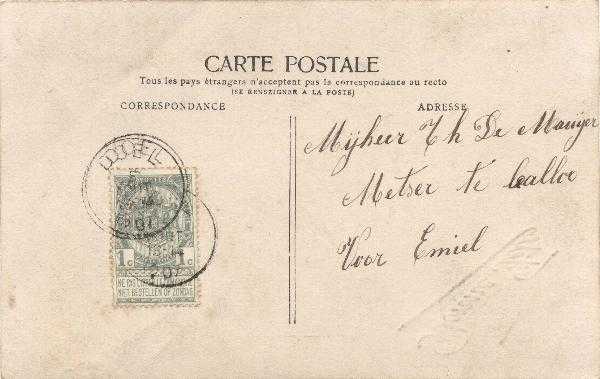 CARTE POSTALE
Tous les pays étrangers n'acceptent pas la correspondance au recto
(SE RENSEIGNER A LA POSTE)
CORRESPONDANCE
ADRESSE
Mijheer Th De Mauijer
Metser te Calloo
Voor Emiel
1c 1c
NE PAS LIVRER LE DIMANCHE
NIET BESTELLEN OP ZONDAG